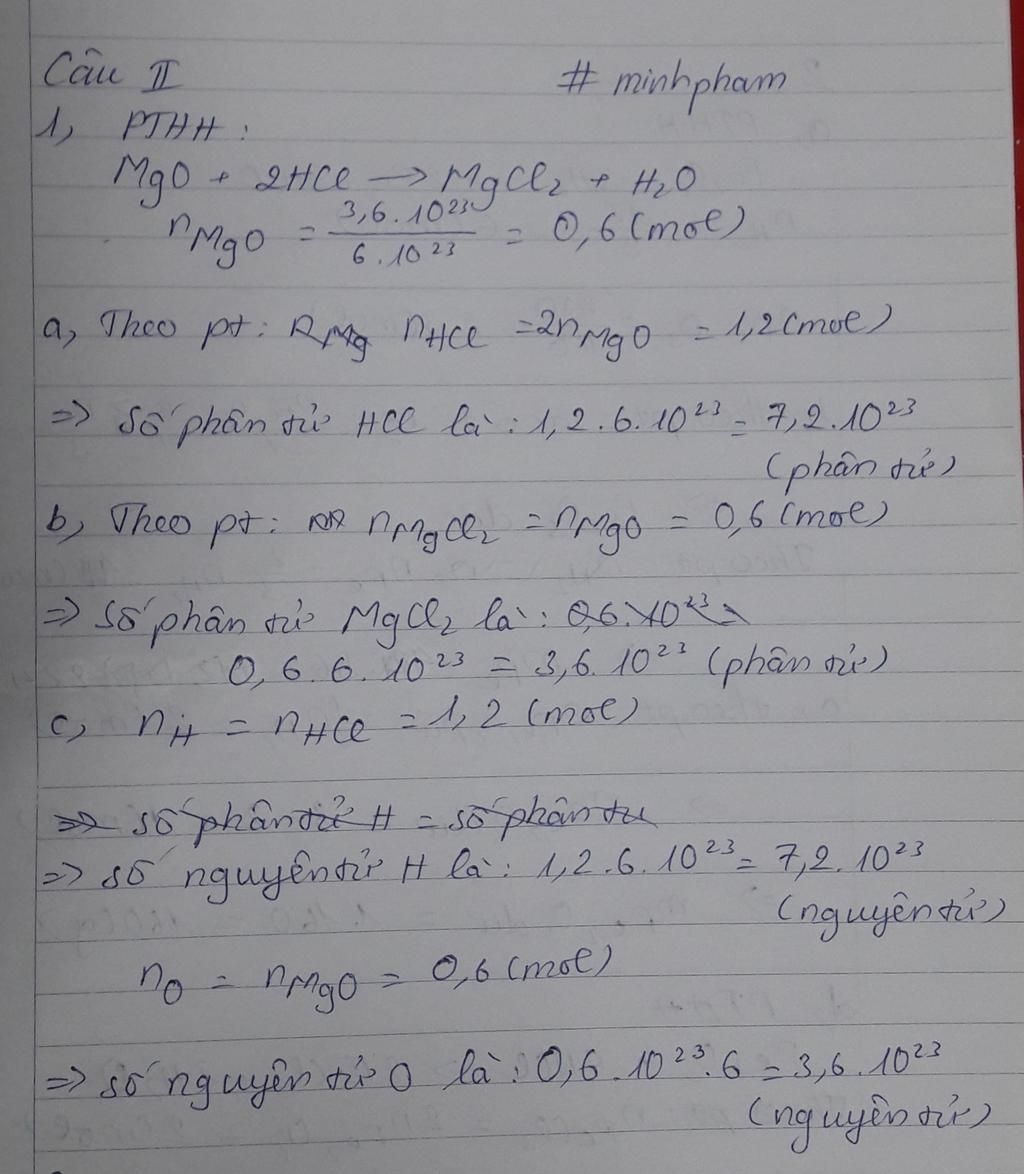 Câu II # minhpham
1, PTHH:
MgO + 2HCl → MgCl₂ + H₂O
nMgO = 3,6.10²³ / 6.10²³ = 0,6 (mol)
a, Theo pt: nHCl = 2nMgO = 1,2 (mol)
=> Số phân tử HCl là: 1,2.6.10²³ = 7,2.10²³
(phân tử)
b, Theo pt: nMgCl₂ = nMgO = 0,6 (mol)
=> Số phân tử MgCl₂ là: 0,6.10²³ =
0,6.6.10²³ = 3,6.10²³ (phân tử)
c, nH = nHCl = 1,2 (mol)
=> số phân tử H = số phân tử
=> số nguyên tử H là: 1,2.6.10²³ = 7,2.10²³
(nguyên tử)
nO = nMgO = 0,6 (mol)
=> số nguyên tử O là: 0,6.10²³.6 = 3,6.10²³
(nguyên tử)